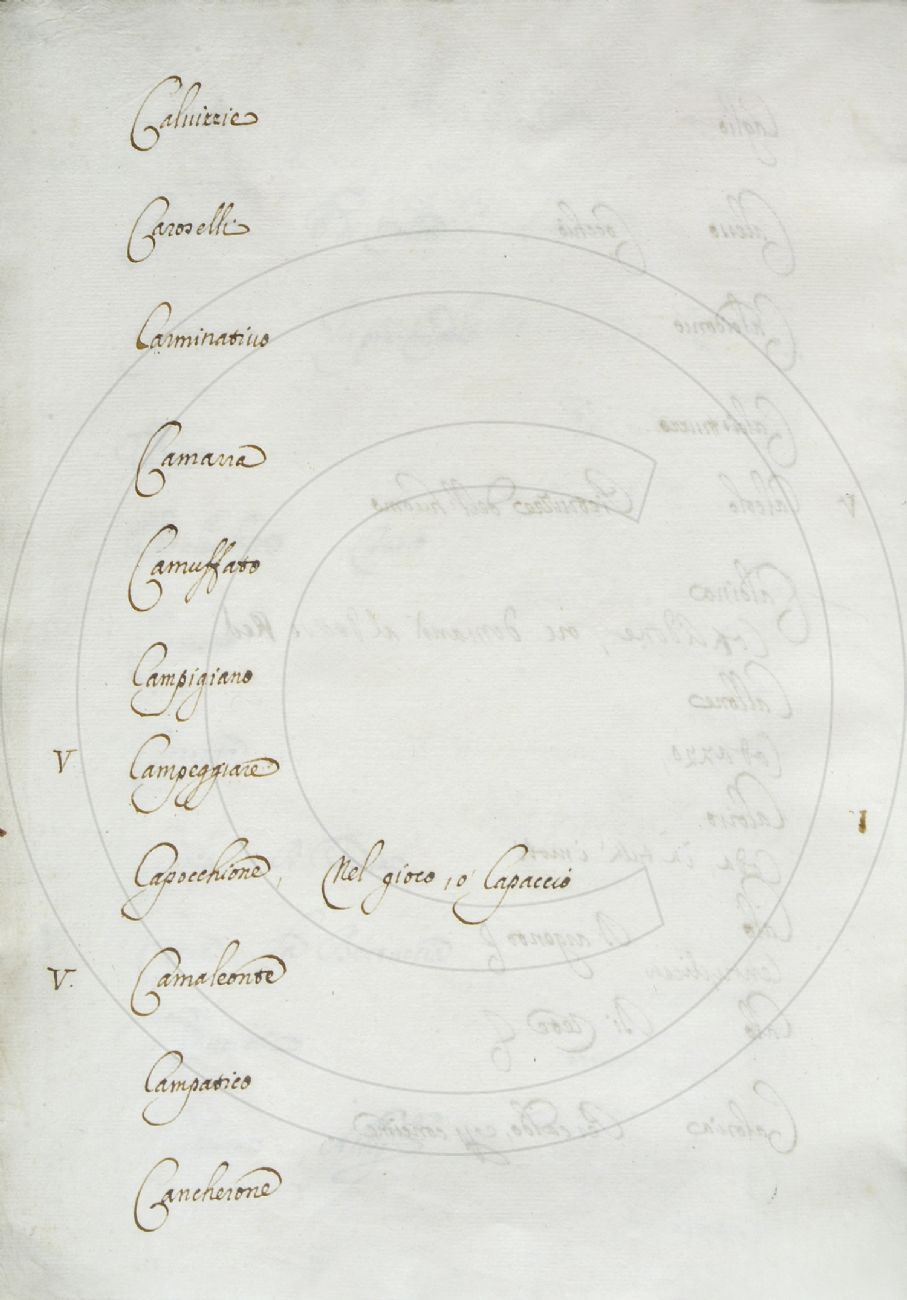 Caluizzie
Caroselli
Carminatiuo
Camarra
Camuffato
Campigiano
V Campeggiare
Capocchione, Nel gioco, o' Capaccio
V. Camaleonte
Campatico
Cancherone